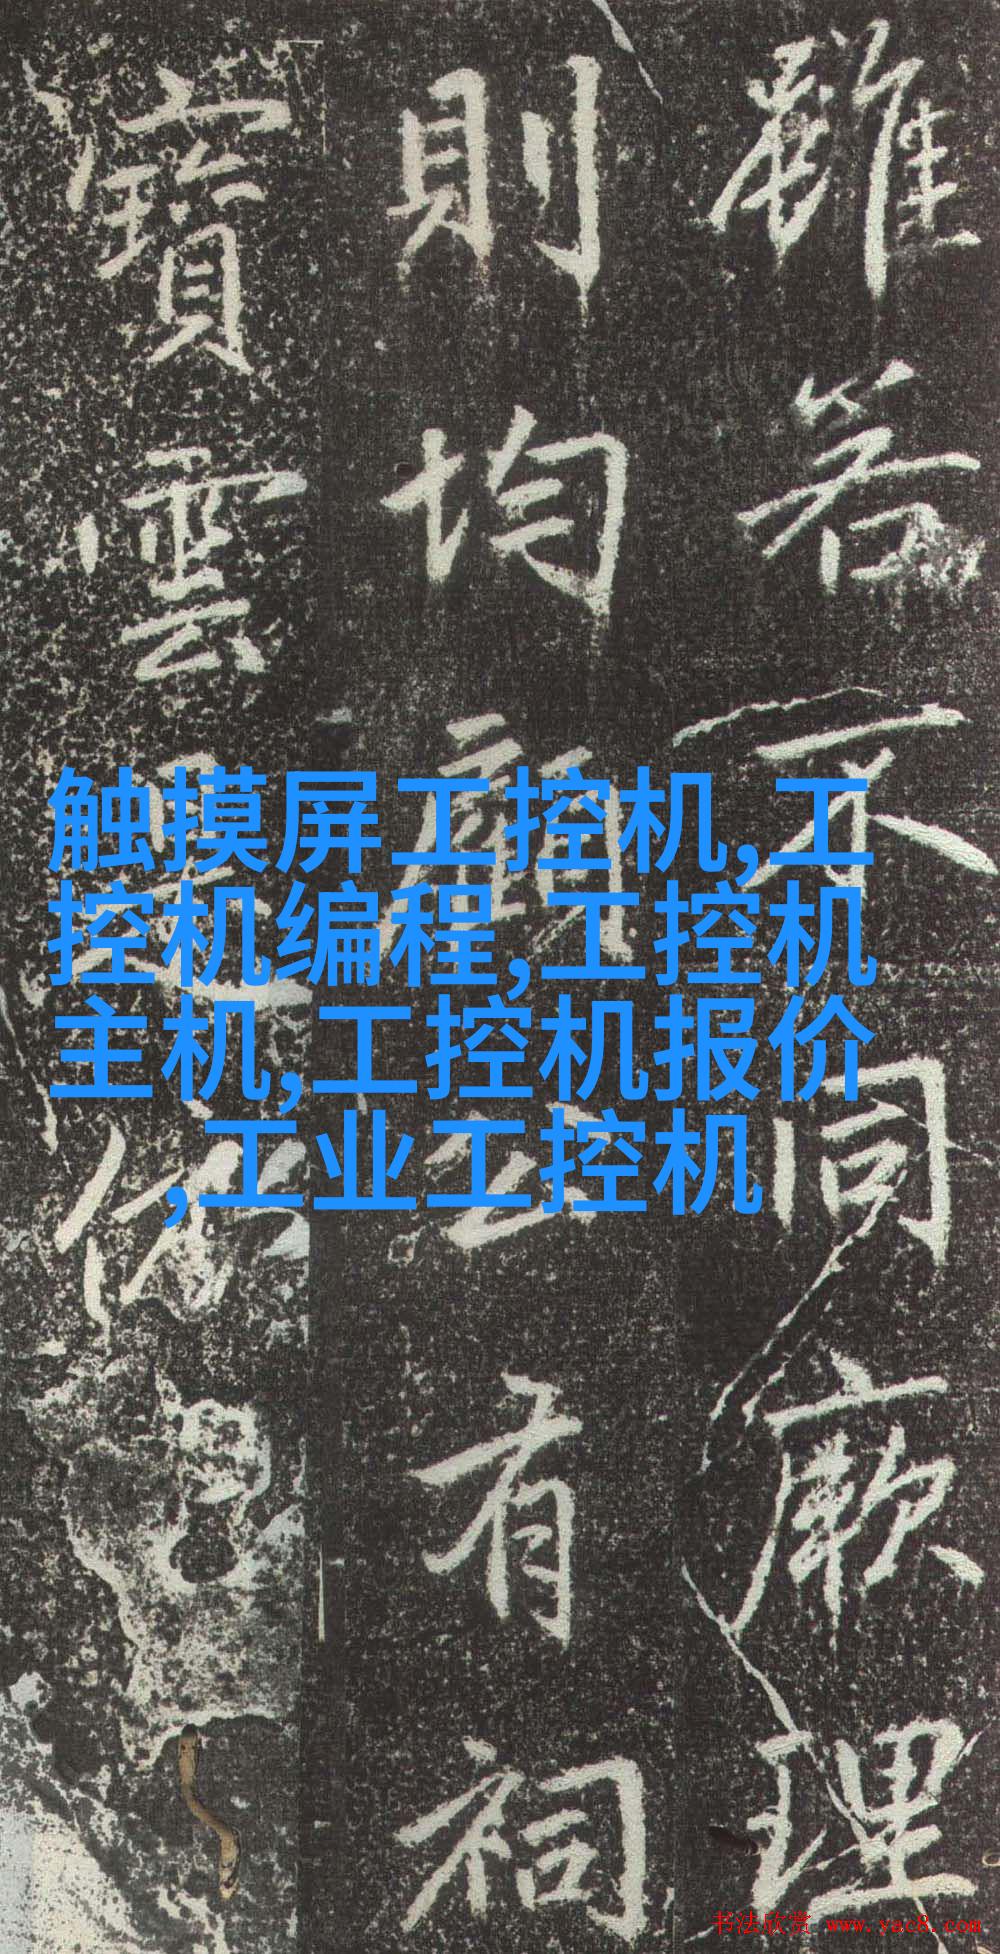 雖若不同厥理
則均顧公有祠
寶雲
触摸屏工控机,工
控机编程,工控机
主机,工控机报价
,工业工控机
书法欣赏 www.yac8.com